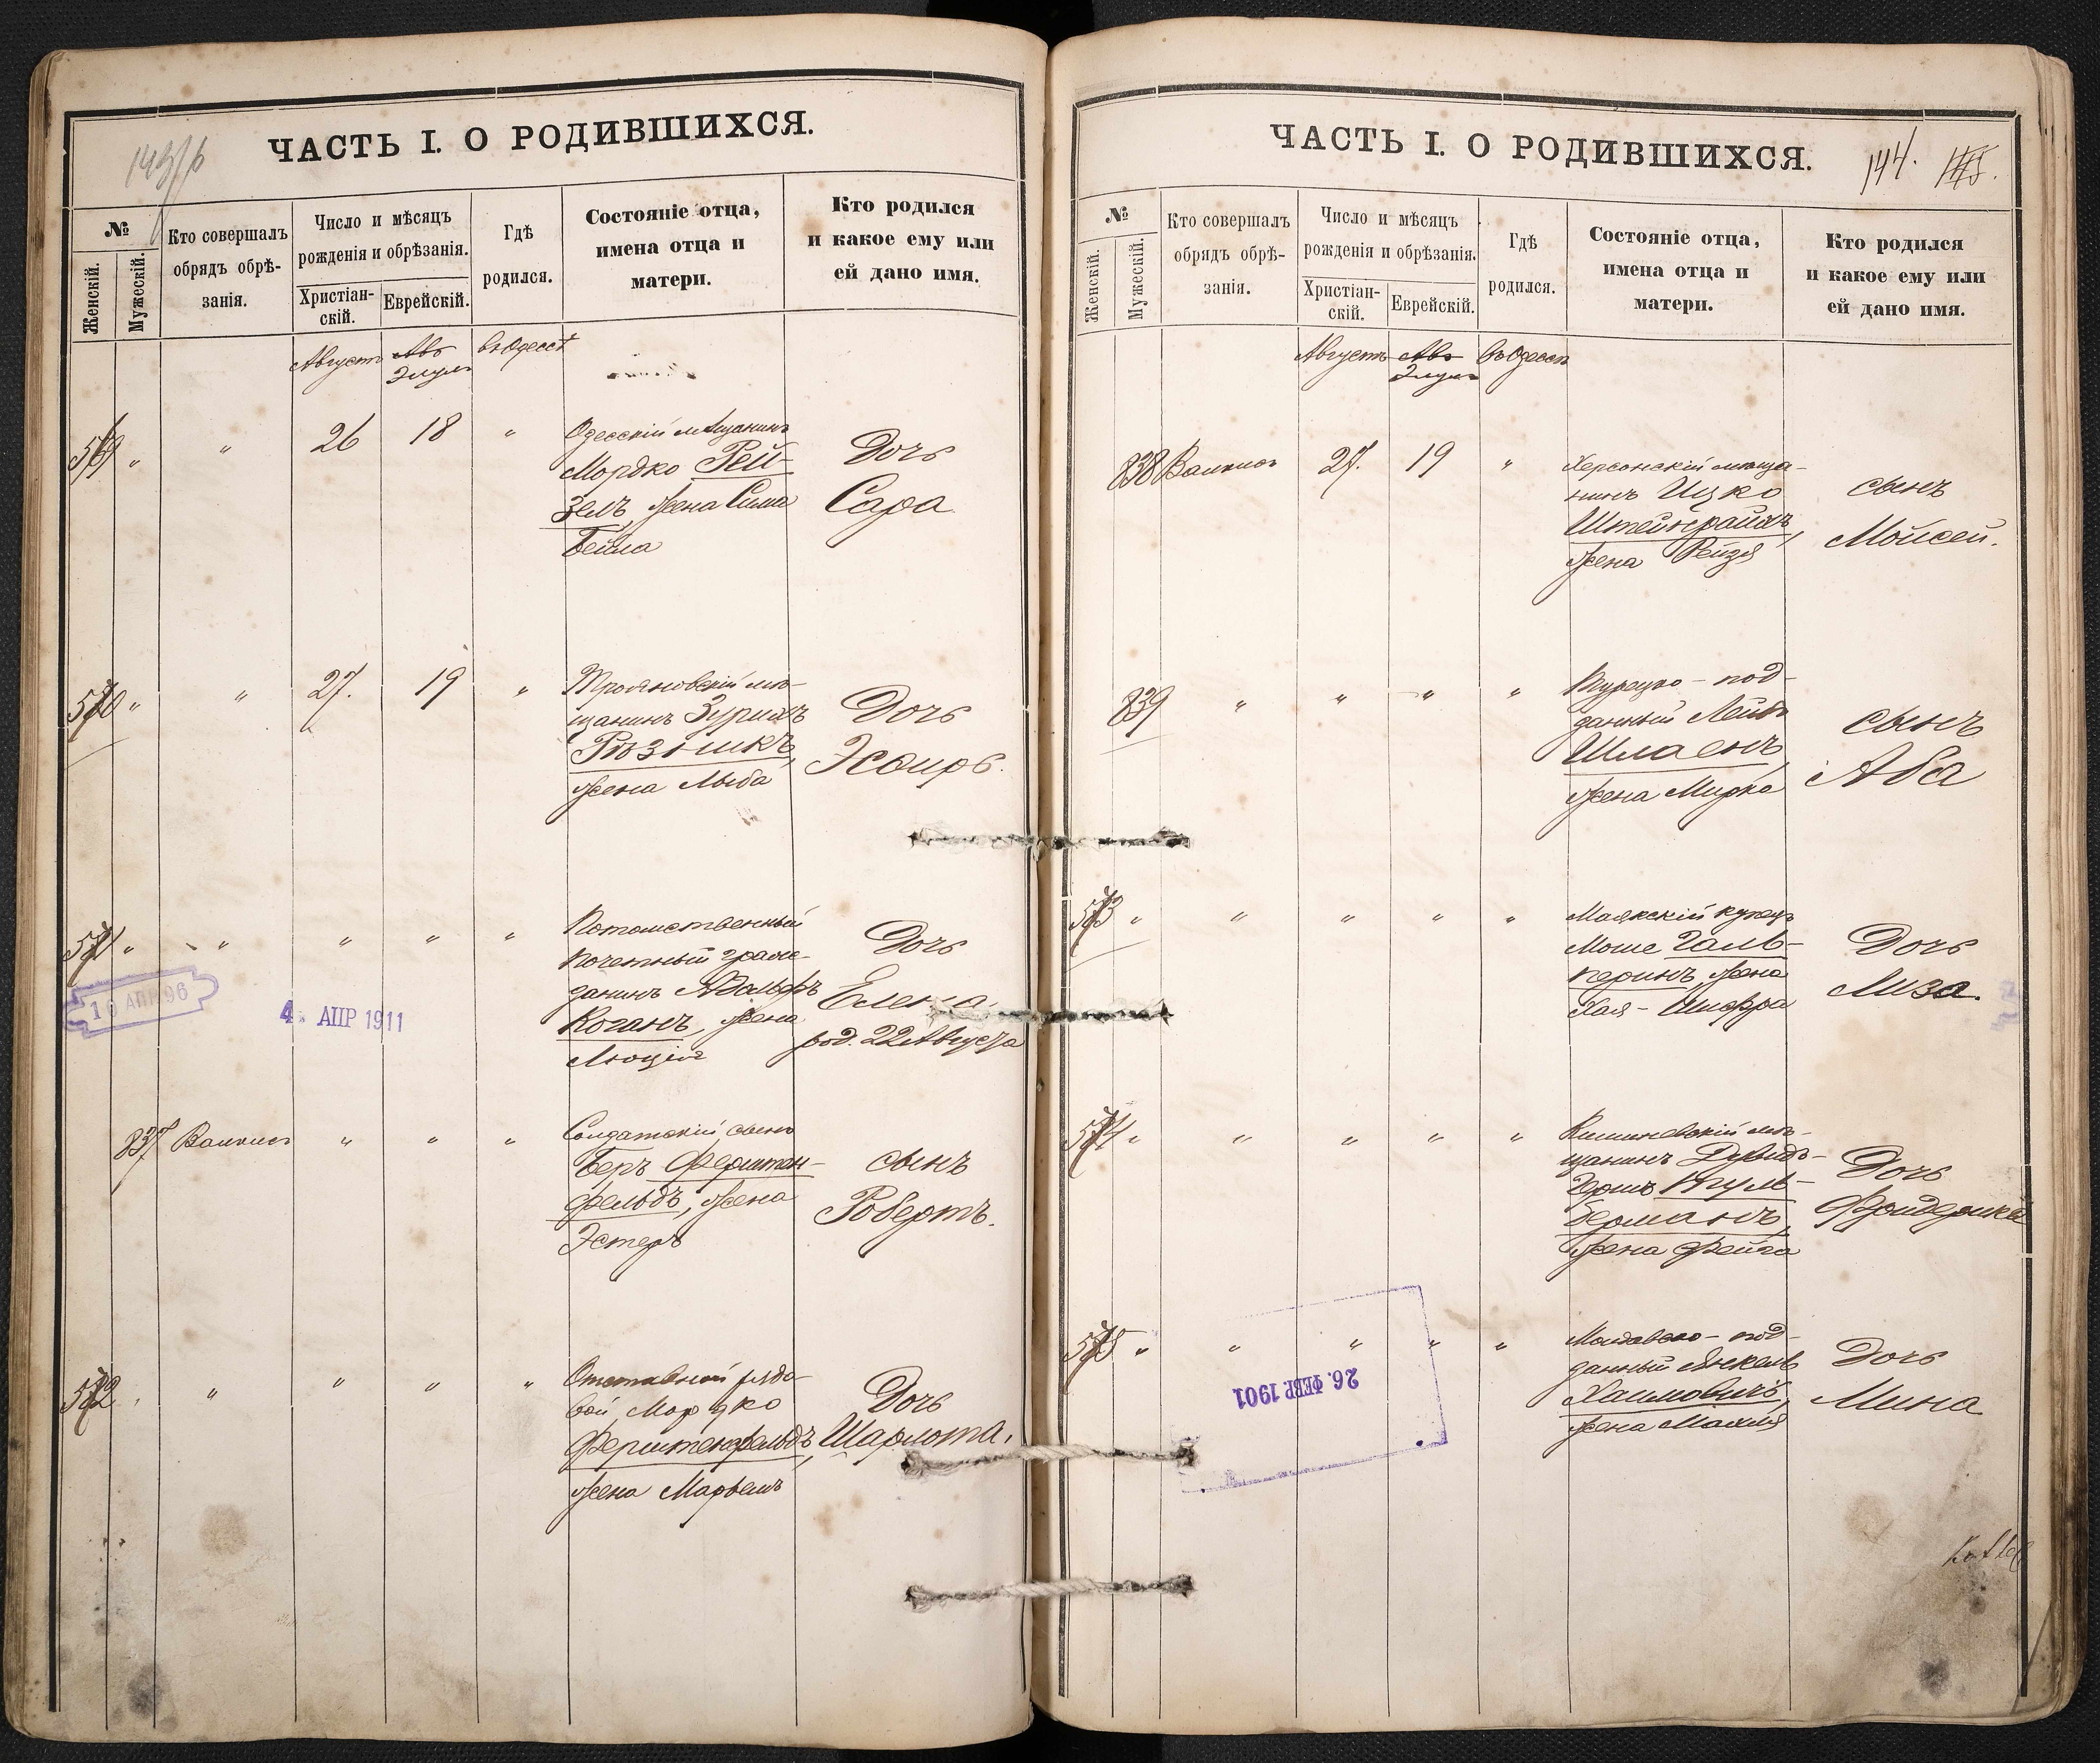 143/б
ЧАСТЬ I. О РОДИВШИХСЯ.
№
Женскій.
Мужескій.
Кто совершалъ
обрядъ обрѣ-
занія.
Число и мѣсяцъ
рожденія и обрѣзанія.
Христіан-
скій.
Еврейскій.
Гдѣ
родился.
Состояніе отца,
имена отца и
матери.
Кто родился
и какое ему или
ей дано имя.
Августъ Авъ въ Одессѣ
Элулъ
569 " " 26 18 "
Одесскій мѣщанинъ
Мордко Рей-
зелъ, жена Сима
Бейла
Дочь
Сара
570 " " 27. 19 "
Трояновскій мѣ-
щанинъ Зурихъ
Рѣзникъ,
жена Лыба
Дочь
Эсѳирь.
571 " " " " "
Потомственный
почетный граж-
данинъ Адольфъ
Коганъ, жена
Люція
Дочь
Елена.
род. 22 Августа
10 АПР 96
4. АПР 1911
837 " " "
Солдатскій сынъ
Беръ Ферштен-
фельдъ, жена
Эстеръ
сынъ
Робертъ.
572 " " " " "
Отставной рядо-
вой Мордко
Ферштенфельдъ,
жена Марьемъ
Дочь
Шарлота.
ЧАСТЬ I. О РОДИВШИХСЯ.
144.
№
Женскій.
Мужескій.
Кто совершалъ
обрядъ обрѣ-
занія.
Число и мѣсяцъ
рожденія и обрѣзанія.
Христіан-
скій.
Еврейскій.
Гдѣ
родился.
Состояніе отца,
имена отца и
матери.
Кто родился
и какое ему или
ей дано имя.
Августъ Авъ въ Одессѣ
Элулъ
838 27. 19 "
Херсонскій мѣща-
нинъ Ицко
Штейнграйхъ,
жена Рейзя
сынъ
Мойсей.
839 " " " "
Турецко-под-
данный Лейбъ
Шлаенъ,
жена Мирка
сынъ
Аба
573 " " " " "
Маякскій купецъ
Моше Галь-
перинъ, жена
Хая-Шифра
Дочь
Лиза.
574 " " " " "
Кишиневскій мѣ-
щанинъ Дувидъ-
Гершъ
жена Фейга
Дочь
Фридерика
575 " " " " "
Молдавско-под-
данный Янкель
Хаимовичъ,
жена Махля
Дочь
Мина
26. ФЕВР. 1901